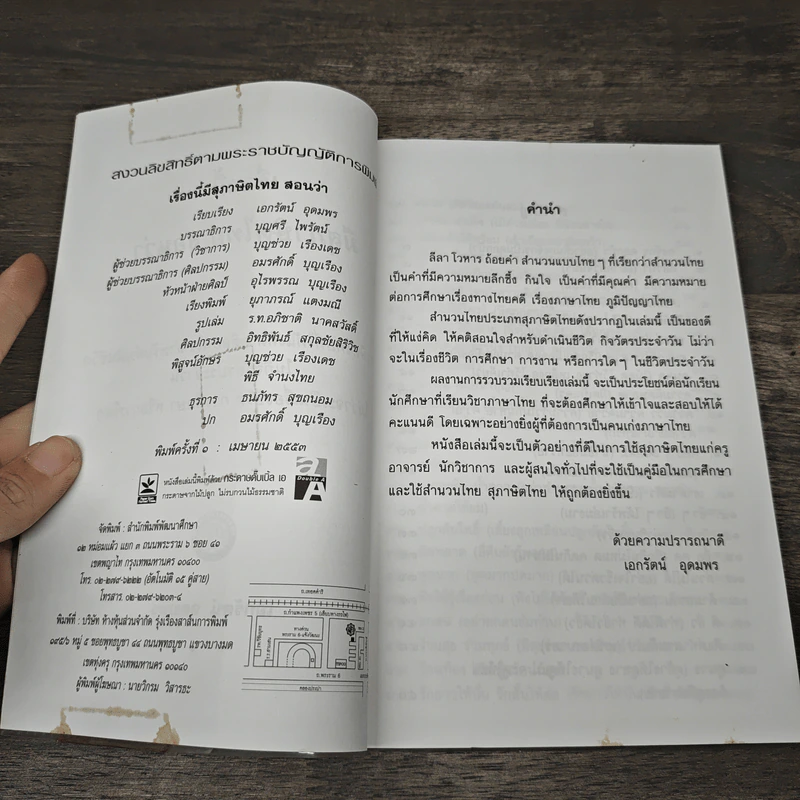 สงวนลิขสิทธิ์ตามพระราชบัญญัติการพิมพ์
เรื่องนี้มีสุภาษิตไทย สอนว่า
เรียบเรียง เอกรัตน์ อุดมพร
บรรณาธิการ บุญศรี ไพรัตน์
ผู้ช่วยบรรณาธิการ (วิชาการ) บุญช่วย เรืองเดช
ผู้ช่วยบรรณาธิการ (ศิลปกรรม) อมรศักดิ์ บุญเรือง
หัวหน้าฝ่ายศิลป์ อุไรพรรณ บุญเรือง
เรียงพิมพ์ ยุภาภรณ์ แตงมณี
รูปเล่ม ร.ท.อภิชาติ นาคสวัสดิ์
ศิลปกรรม อิทธิพันธ์ สกุลชัยสิริวิช
พิสูจน์อักษร บุญช่วย เรืองเดช
พิธี จำนงไทย
ธุรการ ธนภัทร สุขถนอม
ปก อมรศักดิ์ บุญเรือง
พิมพ์ครั้งที่ ๑ : เมษายน ๒๕๕๓
หนังสือเล่มนี้พิมพ์ด้วย กระดาษดั๊บเบิ้ล เอ
กระดาษจากไม้ปลูก ไม่รบกวนไม้ธรรมชาติ
Double A
จัดพิมพ์ : สำนักพิมพ์พัฒนาศึกษา
๓๒ หม่อมแผ้ว แยก ๓ ถนนพระราม ๖ ซอย ๔๑
เขตพญาไท กรุงเทพมหานคร ๑๐๔๐๐
โทร. ๐๒-๒๗๙-๖๒๒๒ (อัตโนมัติ ๑๕ คู่สาย)
โทรสาร. ๐๒-๒๗๙-๖๒๐๓-๔
พิมพ์ที่ : บริษัท ห้างหุ้นส่วนจำกัด รุ่งเรืองสาส์นการพิมพ์
๑๙๕/๖ หมู่ ๕ ซอยพุทธบูชา ๔๔ ถนนพุทธบูชา แขวงบางมด
เขตทุ่งครุ กรุงเทพมหานคร ๑๐๑๔๐
ผู้พิมพ์ผู้โฆษณา : นายวิกรม วิสารธะ
คำนำ
ลีลา โวหาร ถ้อยคำ สำนวนแบบไทย ๆ ที่เรียกว่าสำนวนไทย
เป็นคำที่มีความหมายลึกซึ้ง กินใจ เป็นคำที่มีคุณค่า มีความหมาย
ต่อการศึกษาเรื่องทางไทยคดี เรื่องภาษาไทย ภูมิปัญญาไทย
สำนวนไทยประเภทสุภาษิตไทยดังปรากฏในเล่มนี้ เป็นของดี
ที่ให้แง่คิด ให้คติสอนใจสำหรับดำเนินชีวิต กิจวัตรประจำวัน ไม่ว่า
จะในเรื่องชีวิต การศึกษา การงาน หรือการใด ๆ ในชีวิตประจำวัน
ผลงานการรวบรวมเรียบเรียงเล่มนี้ จะเป็นประโยชน์ต่อนักเรียน
นักศึกษาที่เรียนวิชาภาษาไทย ที่จะต้องศึกษาให้เข้าใจและสอบให้ได้
คะแนนดี โดยเฉพาะอย่างยิ่งผู้ที่ต้องการเป็นคนเก่งภาษาไทย
หนังสือเล่มนี้จะเป็นตัวอย่างที่ดีในการใช้สุภาษิตไทยแก่ครู
อาจารย์ นักวิชาการ และผู้สนใจทั่วไปที่จะใช้เป็นคู่มือในการศึกษา
และใช้สำนวนไทย สุภาษิตไทย ให้ถูกต้องยิ่งขึ้น
ด้วยความปรารถนาดี
เอกรัตน์ อุดมพร